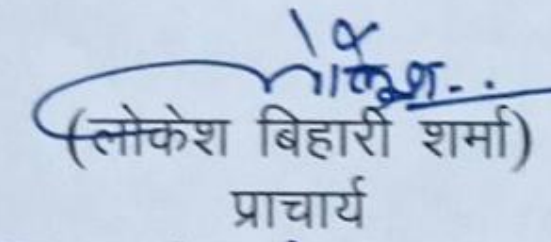 लोकेश
(लोकेश बिहारी शर्मा)
प्राचार्य